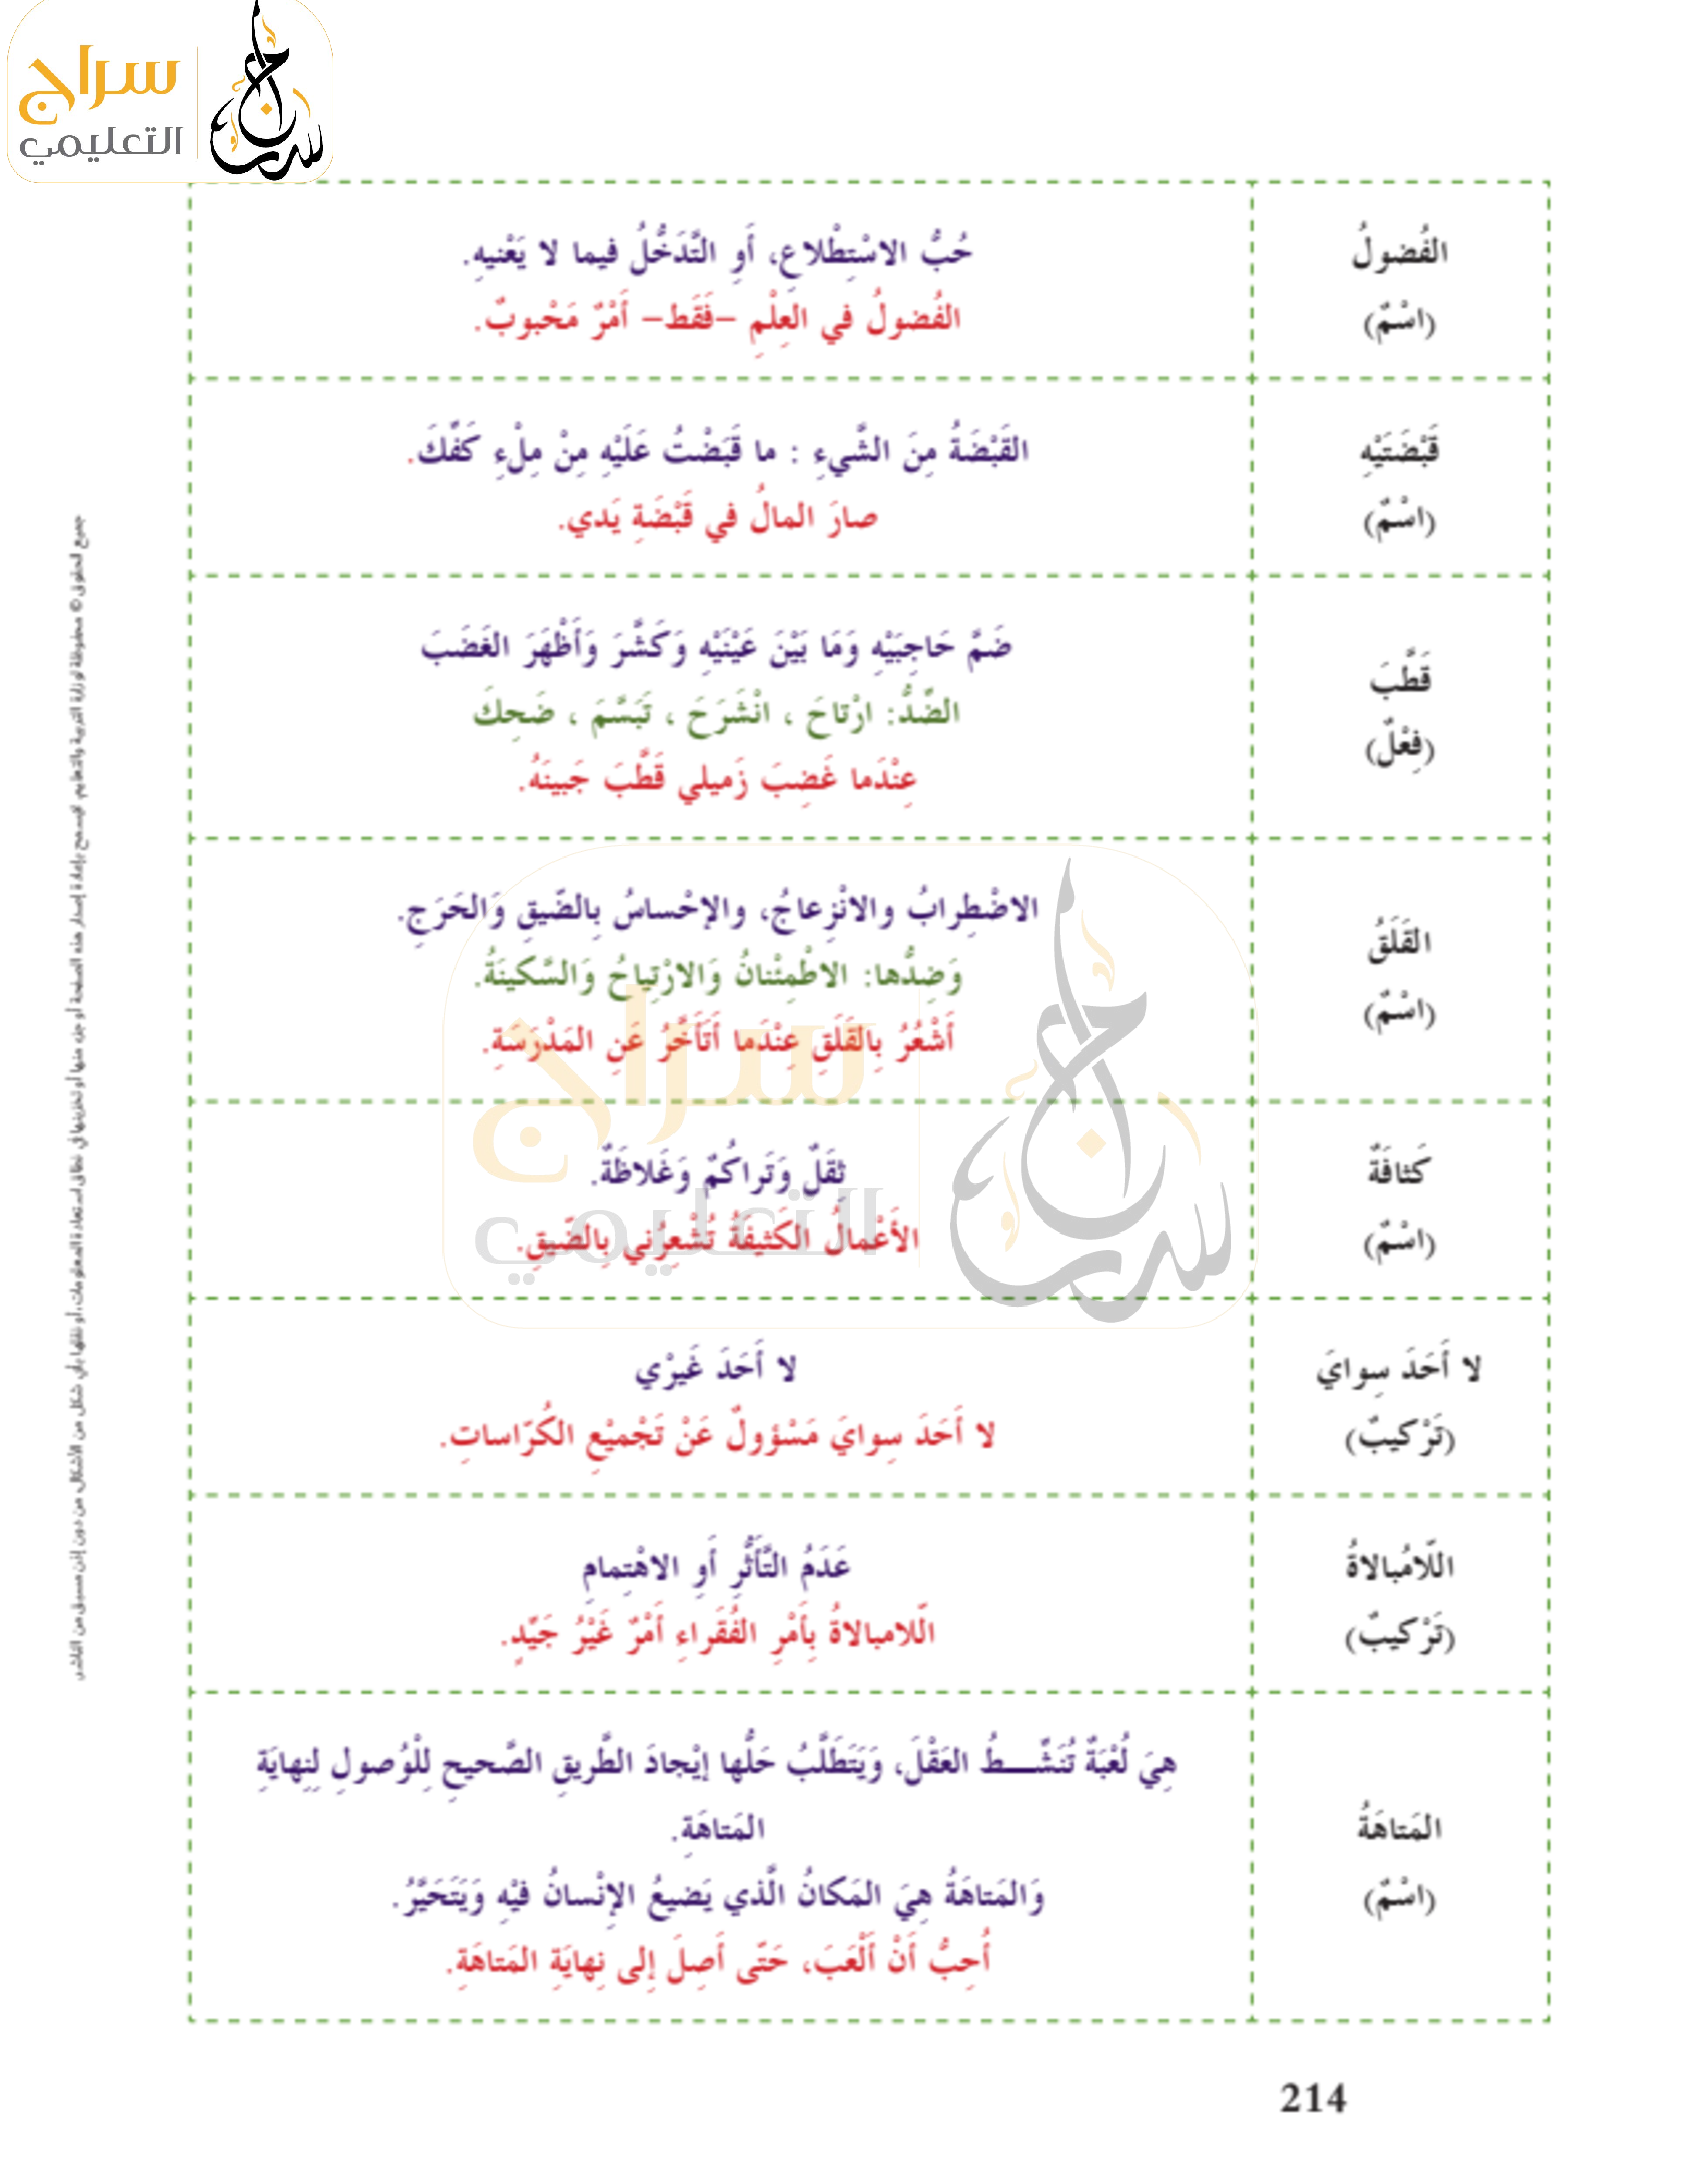 سراج
التعليمي
الفُضولُ
(اسْمٌ)
حُبُّ الاسْتِطْلاعِ، أَوِ التَّدَخُّلُ فيما لا يَعْنيهِ.
الفُضولُ في العِلْمِ –فَقَط– أَمْرٌ مَحْبوبٌ.
قَبْضَتَيْهِ
(اسْمٌ)
القَبْضَةُ مِنَ الشَّيءِ : ما قَبَضْتُ عَلَيْهِ مِنْ مِلْءِ كَفَّكَ.
صارَ المالُ في قَبْضَةِ يَدي.
قَطَّبَ
(فِعْلٌ)
ضَمَّ حَاجِبَيْهِ وَمَا بَيْنَ عَيْنَيْهِ وَكَشَّرَ وَأَظْهَرَ الغَضَبَ
الضِّدُّ: ارْتاحَ ، انْشَرَحَ ، تَبَسَّمَ ، ضَحِكَ
عِنْدَما غَضِبَ زَميلي قَطَّبَ جَبينَهُ.
القَلَقُ
(اسْمٌ)
الاضْطِرابُ والانْزِعاجُ، والإحْساسُ بِالضّيقِ وَالحَرَجِ.
وَضِدُّها: الاطْمِئْنانُ وَالارْتِياحُ وَالسَّكينَةُ.
أَشْعُرُ بِالقَلَقِ عِنْدَما أَتَأَخَّرُ عَنِ المَدْرَسَةِ.
كَثافَةٌ
(اسْمٌ)
ثِقَلٌ وَتَراكُمٌ وَغَلاظَةٌ.
الأَعْمالُ الكَثيفَةُ تُشْعِرُني بِالضّيقِ.
لا أَحَدَ سِوايَ
(تَرْكيبٌ)
لا أَحَدَ غَيرْي
لا أَحَدَ سِوايَ مَسْؤولٌ عَنْ تَجْميْعِ الكُرّاساتِ.
اللّامُبالاةُ
(تَرْكيبٌ)
عَدَمُ التَّأَثُّرِ أَوِ الاهْتِمامِ
الّلامبالاةُ بِأَمْرِ الفُقَراءِ أَمْرٌ غَيْرُ جَيِّدٍ.
المَتاهَةُ
(اسْمٌ)
هِيَ لُعْبَةٌ تُنَشِّـــطُ العَقْلَ، وَيَتَطَلَّبُ حَلُّها إيْجادَ الطَّريقِ الصَّحيحِ لِلْوُصولِ لِنِهايَةِ
المَتاهَةِ.
وَالمَتاهَةُ هِيَ المَكانُ الَّذي يَضيعُ الإِنْسانُ فيْهِ وَيَتَحَيَّرُ.
أُحِبُّ أَنْ أَلْعَبَ، حَتّى أَصِلَ إِلى نِهايَةِ المَتاهَةِ.
جميع الحقوق © محفوظة لوزارة التربية والتعليم. لا يسمح بإعادة إصدار هذه الصفحة أو جزء منها أو تخزينها في نطاق استعادة المعلومات، أو نقلها بأي شكل من الأشكال، من دون إذن مسبق من الناشر.
سراج
التعليمي
214